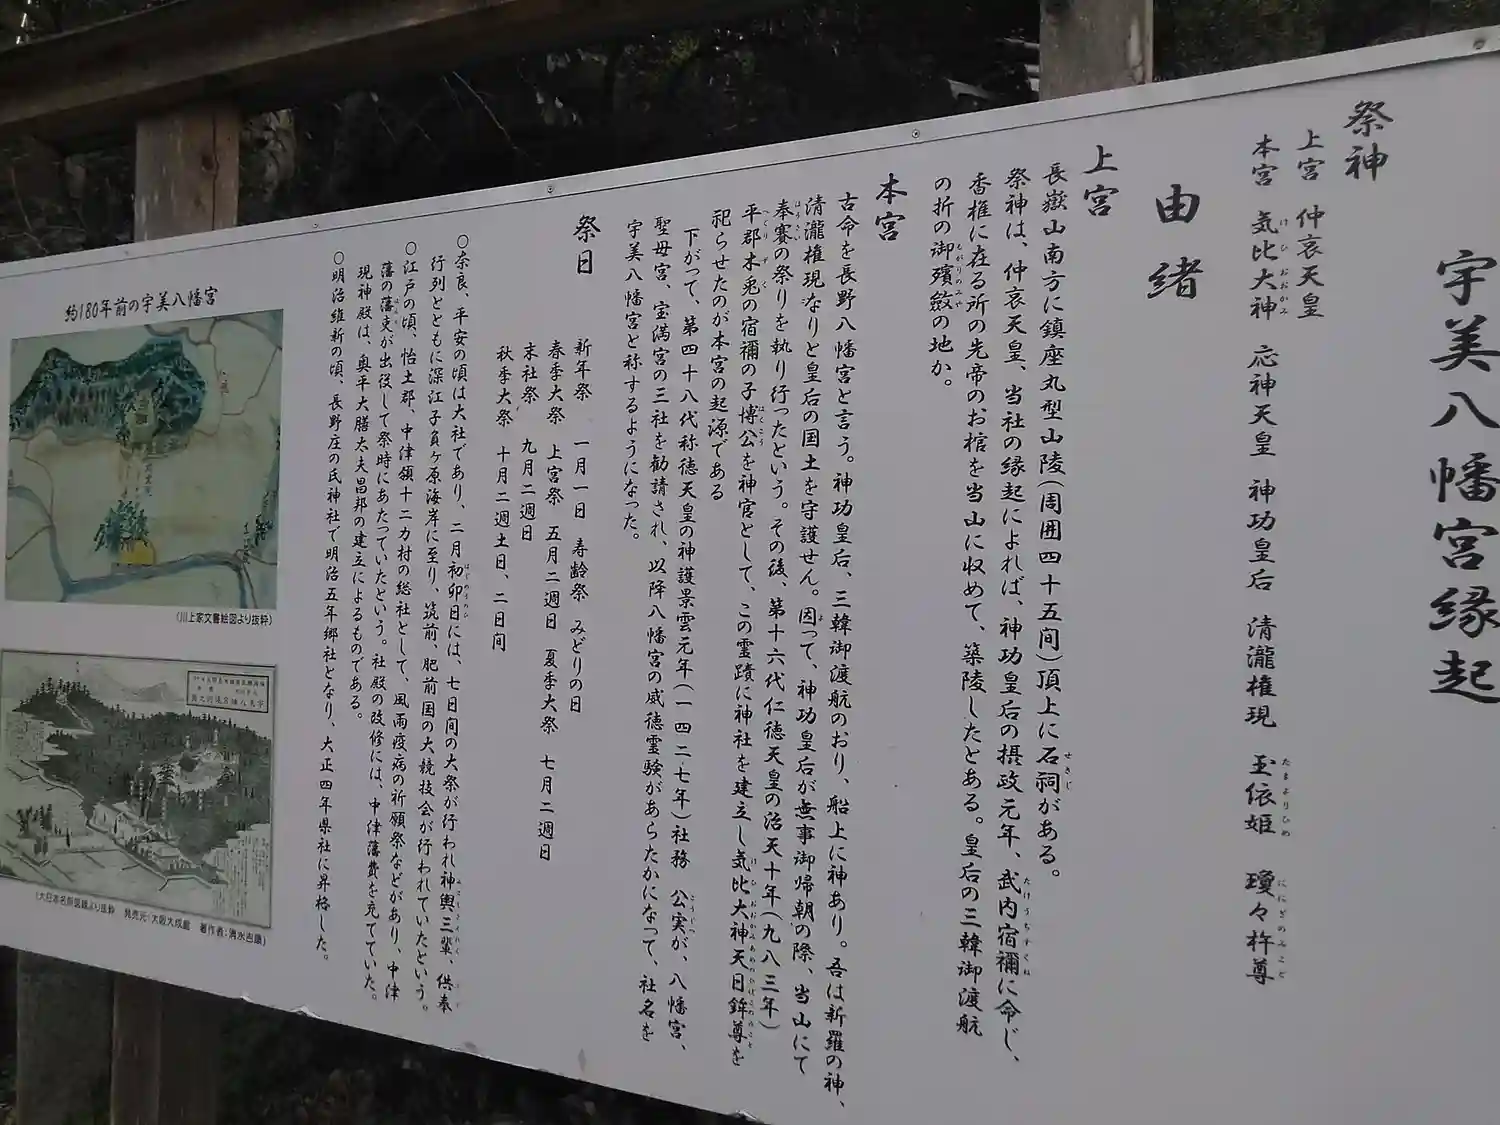 宇美八幡宮縁起
祭神
上宮 仲哀天皇
本宮 気比大神 応神天皇 神功皇后 清瀧権現 玉依姫 瓊々杵尊
けひおおかみ たまよりひめ ににぎのみこと
由緒
上宮
長嶽山南方に鎮座丸型山陵(周囲四十五間)頂上に石祠がある。
せきじ
祭神は、仲哀天皇、当社の縁起によれば、神功皇后の摂政元年、武内宿禰に命じ、
たけうちすくね
香椎に在る所の先帝のお棺を当山に収めて、築陵したとある。皇后の三韓御渡航
の折の御殯斂の地か。
もがりのみや
本宮
古命を長野八幡宮と言う。神功皇后、三韓御渡航のおり、船上に神あり。吾は新羅の神、
清瀧権現なりと皇后の国土を守護せん。因って、神功皇后が無事御帰朝の際、当山にて
よ
奉賽の祭りを執り行ったという。その後、第十六代仁徳天皇の治天十年(九八三年)
ほうさい
平郡木兎の宿禰の子博公を神官として、この霊蹟に神社を建立し気比大神天日鉾尊を
へぐり ずく はくこう けひおおかみあめのひぼこのみこと
祀らせたのが本宮の起源である
下がって、第四十八代称徳天皇の神護景雲元年(一四二七年)社務 公実が、八幡宮、
こうじつ
聖母宮、宝満宮の三社を勧請され、以降八幡宮の威徳霊験があらたかになって、社名を
宇美八幡宮と称するようになった。
祭日
新年祭 一月一日 寿齢祭 みどりの日
春季大祭 上宮祭 五月二週日 夏季大祭 七月二週日
末社祭 九月二週日
秋季大祭 十月二週土日、二日間
○奈良、平安の頃は大社であり、二月初卯日には、七日間の大祭が行われ神輿三輩、供奉
はじめのうのひ
行列とともに深江子負ヶ原海岸に至り、筑前、肥前国の大競技会が行われていたという。
○江戸の頃、怡土郡、中津領十二カ村の総社として、風雨疫病の祈願祭などがあり、中津
藩の藩吏が出役して祭時にあたっていたという。社殿の改修には、中津藩費を充てていた。
はんり
現神殿は、奥平大膳太夫昌邦の建立によるものである。
○明治維新の頃、長野庄の氏神社で明治五年郷社となり、大正四年県社に昇格した。
約180年前の宇美八幡宮
(川上家文書絵図より抜粋)
(大日本名所図録より抜粋 発売元:大阪大成館 著作者:清水吉康)